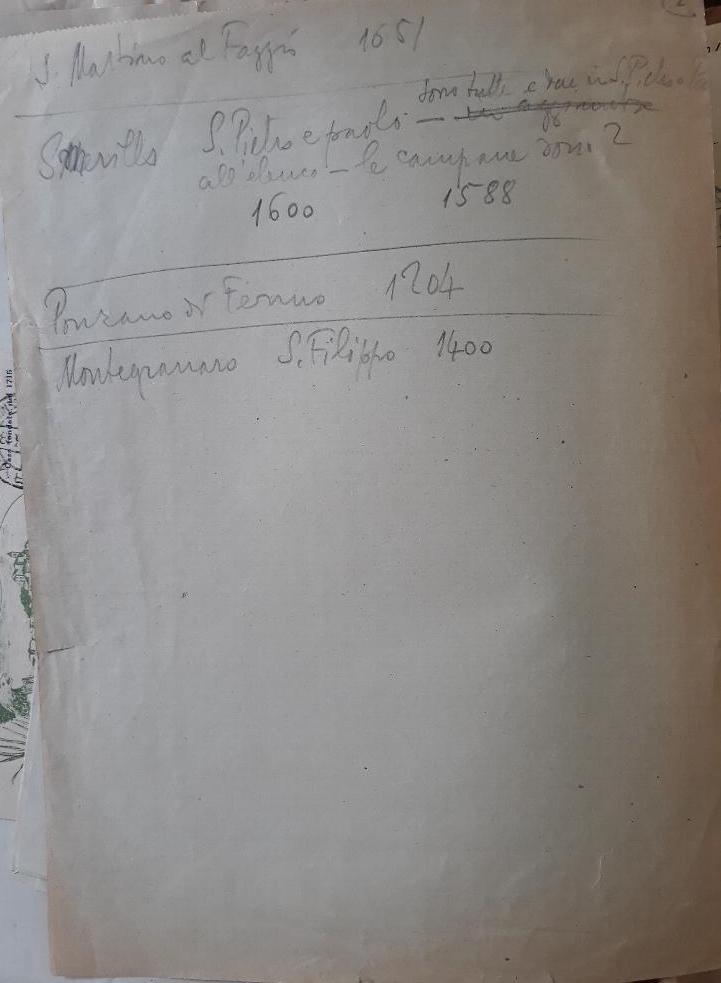 S. Martino al Faggio 1651
sono tutte e due in S. Pietro
Smerillo S. Pietro e paolo —
all'elenco – le campane sono 2
1600 1588
Ponzano di Fermo 1204
Montegranaro S. Filippo 1400
2